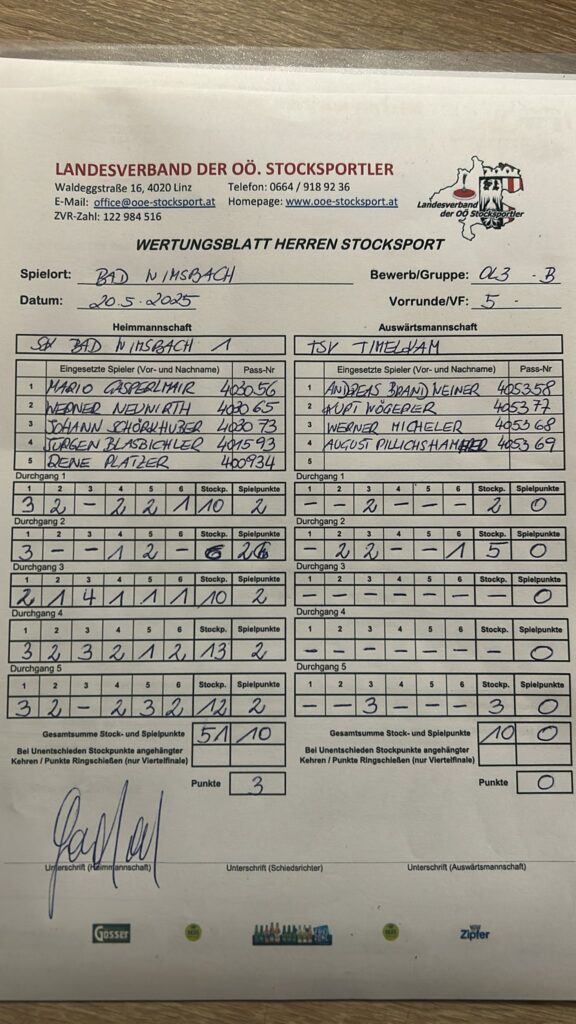 LANDESVERBAND DER OÖ. STOCKSPORTLER
Waldeggstraße 16, 4020 Linz Telefon: 0664 / 918 92 36
E-Mail: office@ooe-stocksport.at Homepage: www.ooe-stocksport.at
ZVR-Zahl: 122 984 516
Landesverband
der OÖ Stocksportler
WERTUNGSBLATT HERREN STOCKSPORT
Spielort: BAD WIMSBACH Bewerb/Gruppe: OL3 - B
Datum: 20.5.2025 Vorrunde/VF: 5 -
Heimmannschaft Auswärtsmannschaft
SV BAD WIMSBACH 1 TSV TIMELKAM
Eingesetzte Spieler (Vor- und Nachname) Pass-Nr Eingesetzte Spieler (Vor- und Nachname) Pass-Nr
1 MARIO GASPERLMAIR 403056 1 ANDREAS BRANDWEINER 405358
2 WERNER NEUWIRTH 403065 2 KURT WÖGERER 405377
3 JOHANN SCHÖRKHUBER 403073 3 WERNER MICHELER 405368
4 JÜRGEN BLASBICHLER 401593 4 AUGUST PILLICHSHAMMER 405369
5 RENE PLATZER 400934 5
Durchgang 1 Durchgang 1
1 2 3 4 5 6 Stockp. Spielpunkte 1 2 3 4 5 6 Stockp. Spielpunkte
3 2 - 2 2 1 10 2 - - 2 - - - 2 0
Durchgang 2 Durchgang 2
1 2 3 4 5 6 Stockp. Spielpunkte 1 2 3 4 5 6 Stockp. Spielpunkte
3 - - 1 2 - 6 2 - 2 2 - - 1 5 0
Durchgang 3 Durchgang 3
1 2 3 4 5 6 Stockp. Spielpunkte 1 2 3 4 5 6 Stockp. Spielpunkte
2 1 4 1 1 1 10 2 - - - - - - - 0
Durchgang 4 Durchgang 4
1 2 3 4 5 6 Stockp. Spielpunkte 1 2 3 4 5 6 Stockp. Spielpunkte
3 2 3 2 1 2 13 2 - - - - - - - 0
Durchgang 5 Durchgang 5
1 2 3 4 5 6 Stockp. Spielpunkte 1 2 3 4 5 6 Stockp. Spielpunkte
3 2 - 2 3 2 12 2 - - 3 - - - 3 0
Gesamtsumme Stock- und Spielpunkte 51 10 Gesamtsumme Stock- und Spielpunkte 10 0
Bei Unentschieden Stockpunkte angehängter Bei Unentschieden Stockpunkte angehängter
Kehren / Punkte Ringschießen (nur Viertelfinale) Kehren / Punkte Ringschießen (nur Viertelfinale)
Punkte 3 Punkte 0
Unterschrift (Heimmannschaft) Unterschrift (Schiedsrichter) Unterschrift (Auswärtsmannschaft)
Gösser Zipfer